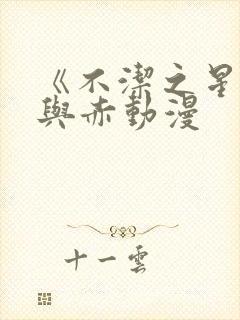 《不潔之星
與赤動漫
十一雲